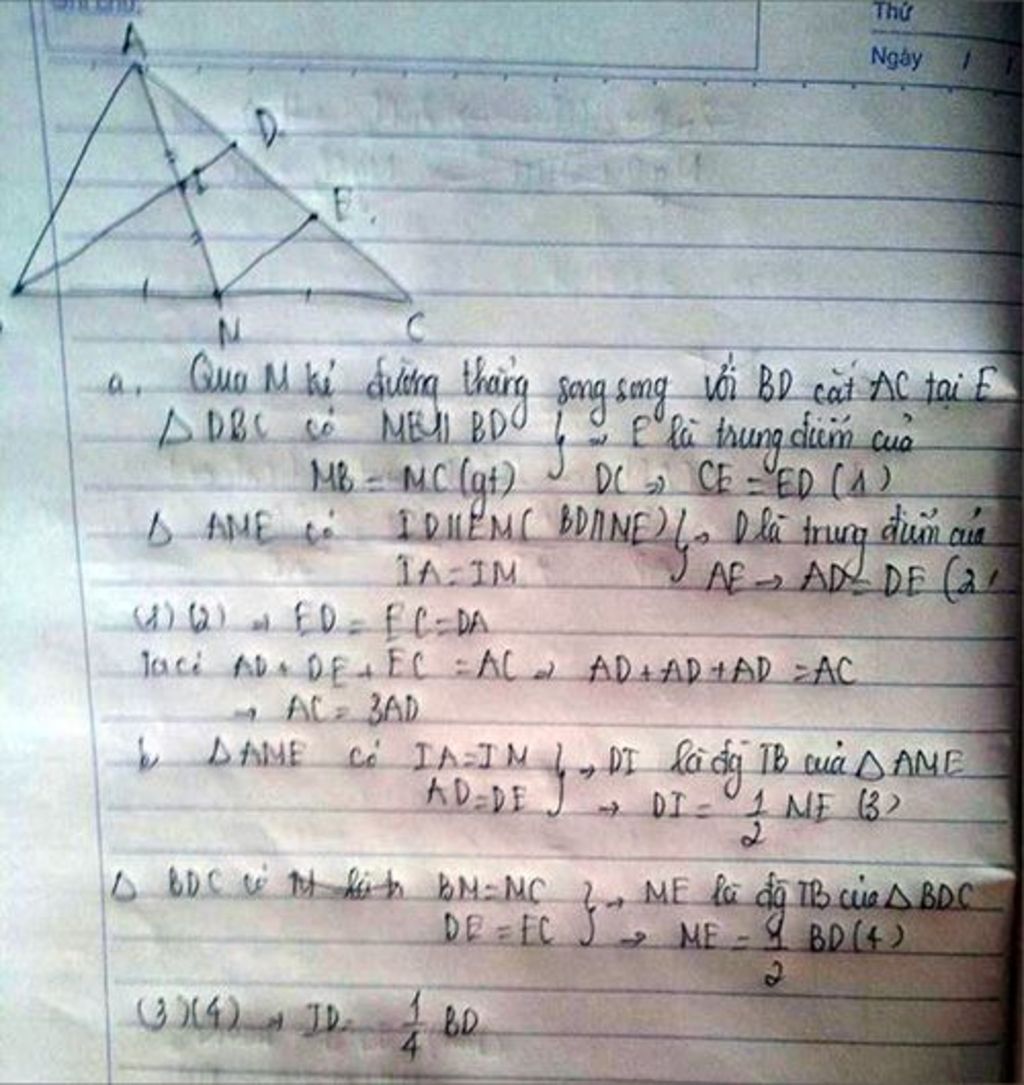 Thứ
Ngày / /
A
D
I
E
M
C
a. Qua M kẻ đường thẳng song song với BD cắt AC tại E
Δ DBC có ME // BD } → E là trung điểm của
MB = MC (gt) DC → CE = ED (1)
Δ AME có ID // EM ( BD // ME) } → D là trung điểm của
IA = IM AE → AD = DE (2)
(1) (2) → ED = EC = DA
Ta có AD + DE + EC = AC → AD + AD + AD = AC
→ AC = 3AD
b, Δ AME có IA = IM } → DI là đg TB của Δ AME
AD = DE → DI = 1/2 ME (3)
Δ BDC có BM = MC } → ME là đg TB của Δ BDC
DE = EC → ME = 1/2 BD (4)
(3)(4) → ID = 1/4 BD